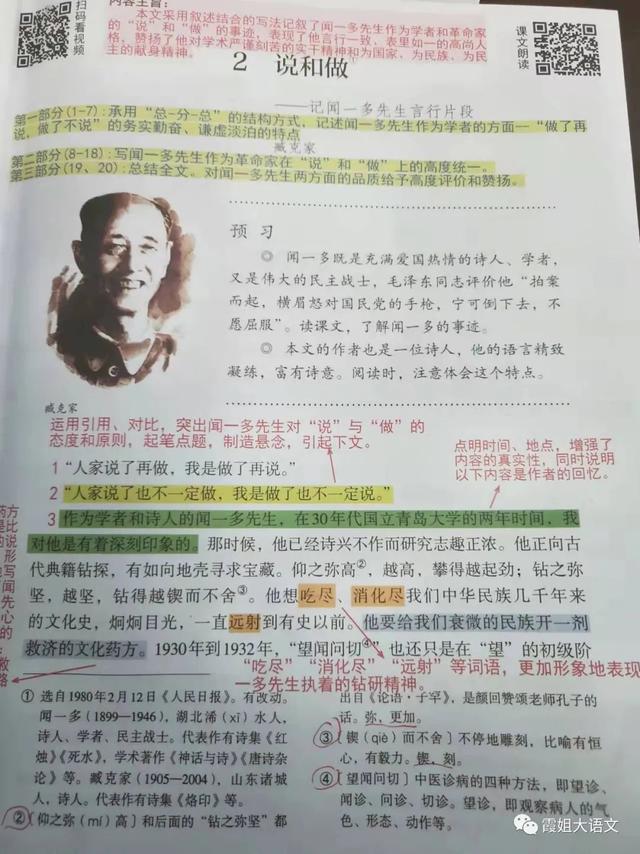 扫码看视频
内容主旨：
本文采用叙述结合的写法记叙了闻一多先生作为学者和革命家
的“说”和“做”的事迹，表现了他言行一致、表里如一的高尚人
格，赞扬了他对学术严谨刻苦的实干精神和为国家、为民族、为民
主的献身精神。
课文朗读
2 说和做
——记闻一多先生言行片段
第一部分(1-7)：承用“总-分-总”的结构方式，记述闻一多先生作为学者的方面—“做了再
说、做了不说”的务实勤奋、谦虚淡泊的特点
臧克家
第二部分(8-18)：写闻一多先生作为革命家在“说”和“做”上的高度统一。
第三部分(19、20)：总结全文。对闻一多先生两方面的品质给予高度评价和赞扬。
预习
◎ 闻一多既是充满爱国热情的诗人、学者，
又是伟大的民主战士，毛泽东同志评价他“拍案
而起，横眉怒对国民党的手枪，宁可倒下去，不
愿屈服”。读课文，了解闻一多的事迹。
◎ 本文的作者也是一位诗人，他的语言精致
凝练，富有诗意。阅读时，注意体会这个特点。
臧克家
运用引用、对比，突出闻一多先生对“说”与“做”的
态度和原则，起笔点题，制造悬念，引起下文。
点明时间、地点，增强了
内容的真实性，同时说明
以下内容是作者的回忆。
1 “人家说了再做，我是做了再说。”
2 “人家说了也不一定做，我是做了也不一定说。”
3 作为学者和诗人的闻一多先生，在30年代国立青岛大学的两年时间，我
对他是有着深刻印象的。那时候，他已经诗兴不作而研究志趣正浓。他正向古
代典籍钻探，有如向地壳寻求宝藏。仰之弥高②，越高，攀得越起劲；钻之弥
坚，越坚，钻得越锲而不舍③。他想吃尽、消化尽我们中华民族几千年来
的文化史，炯炯目光，一直远射到有史以前。他要给我们衰微的民族开一剂
救济的文化药方。1930年到1932年，“望闻问切④”也还只是在“望”的初级阶
“吃尽”“消化尽”“远射”等词语，更加形象地表现
一多先生执着的钻研精神。
① 选自1980年2月12日《人民日报》。有改动。
闻一多（1899—1946），湖北浠（xī）水人，
诗人、学者、民主战士。代表作有诗集《红
烛》《死水》，学术著作《神话与诗》《唐诗杂
论》等。臧克家（1905—2004），山东诸城
人，诗人。代表作有诗集《烙印》等。
②〔仰之弥（mí）高〕和后面的“钻之弥坚”都
出自《论语·子罕》，是颜回赞颂老师孔子的
话。弥，更加。
③〔锲（qiè）而不舍〕不停地雕刻，比喻有恒
心，有毅力。锲，刻。
④〔望闻问切〕中医诊病的四种方法，即望诊、
闻诊、问诊、切诊。望诊，即观察病人的气
色、形态、动作等。
霞姐大语文